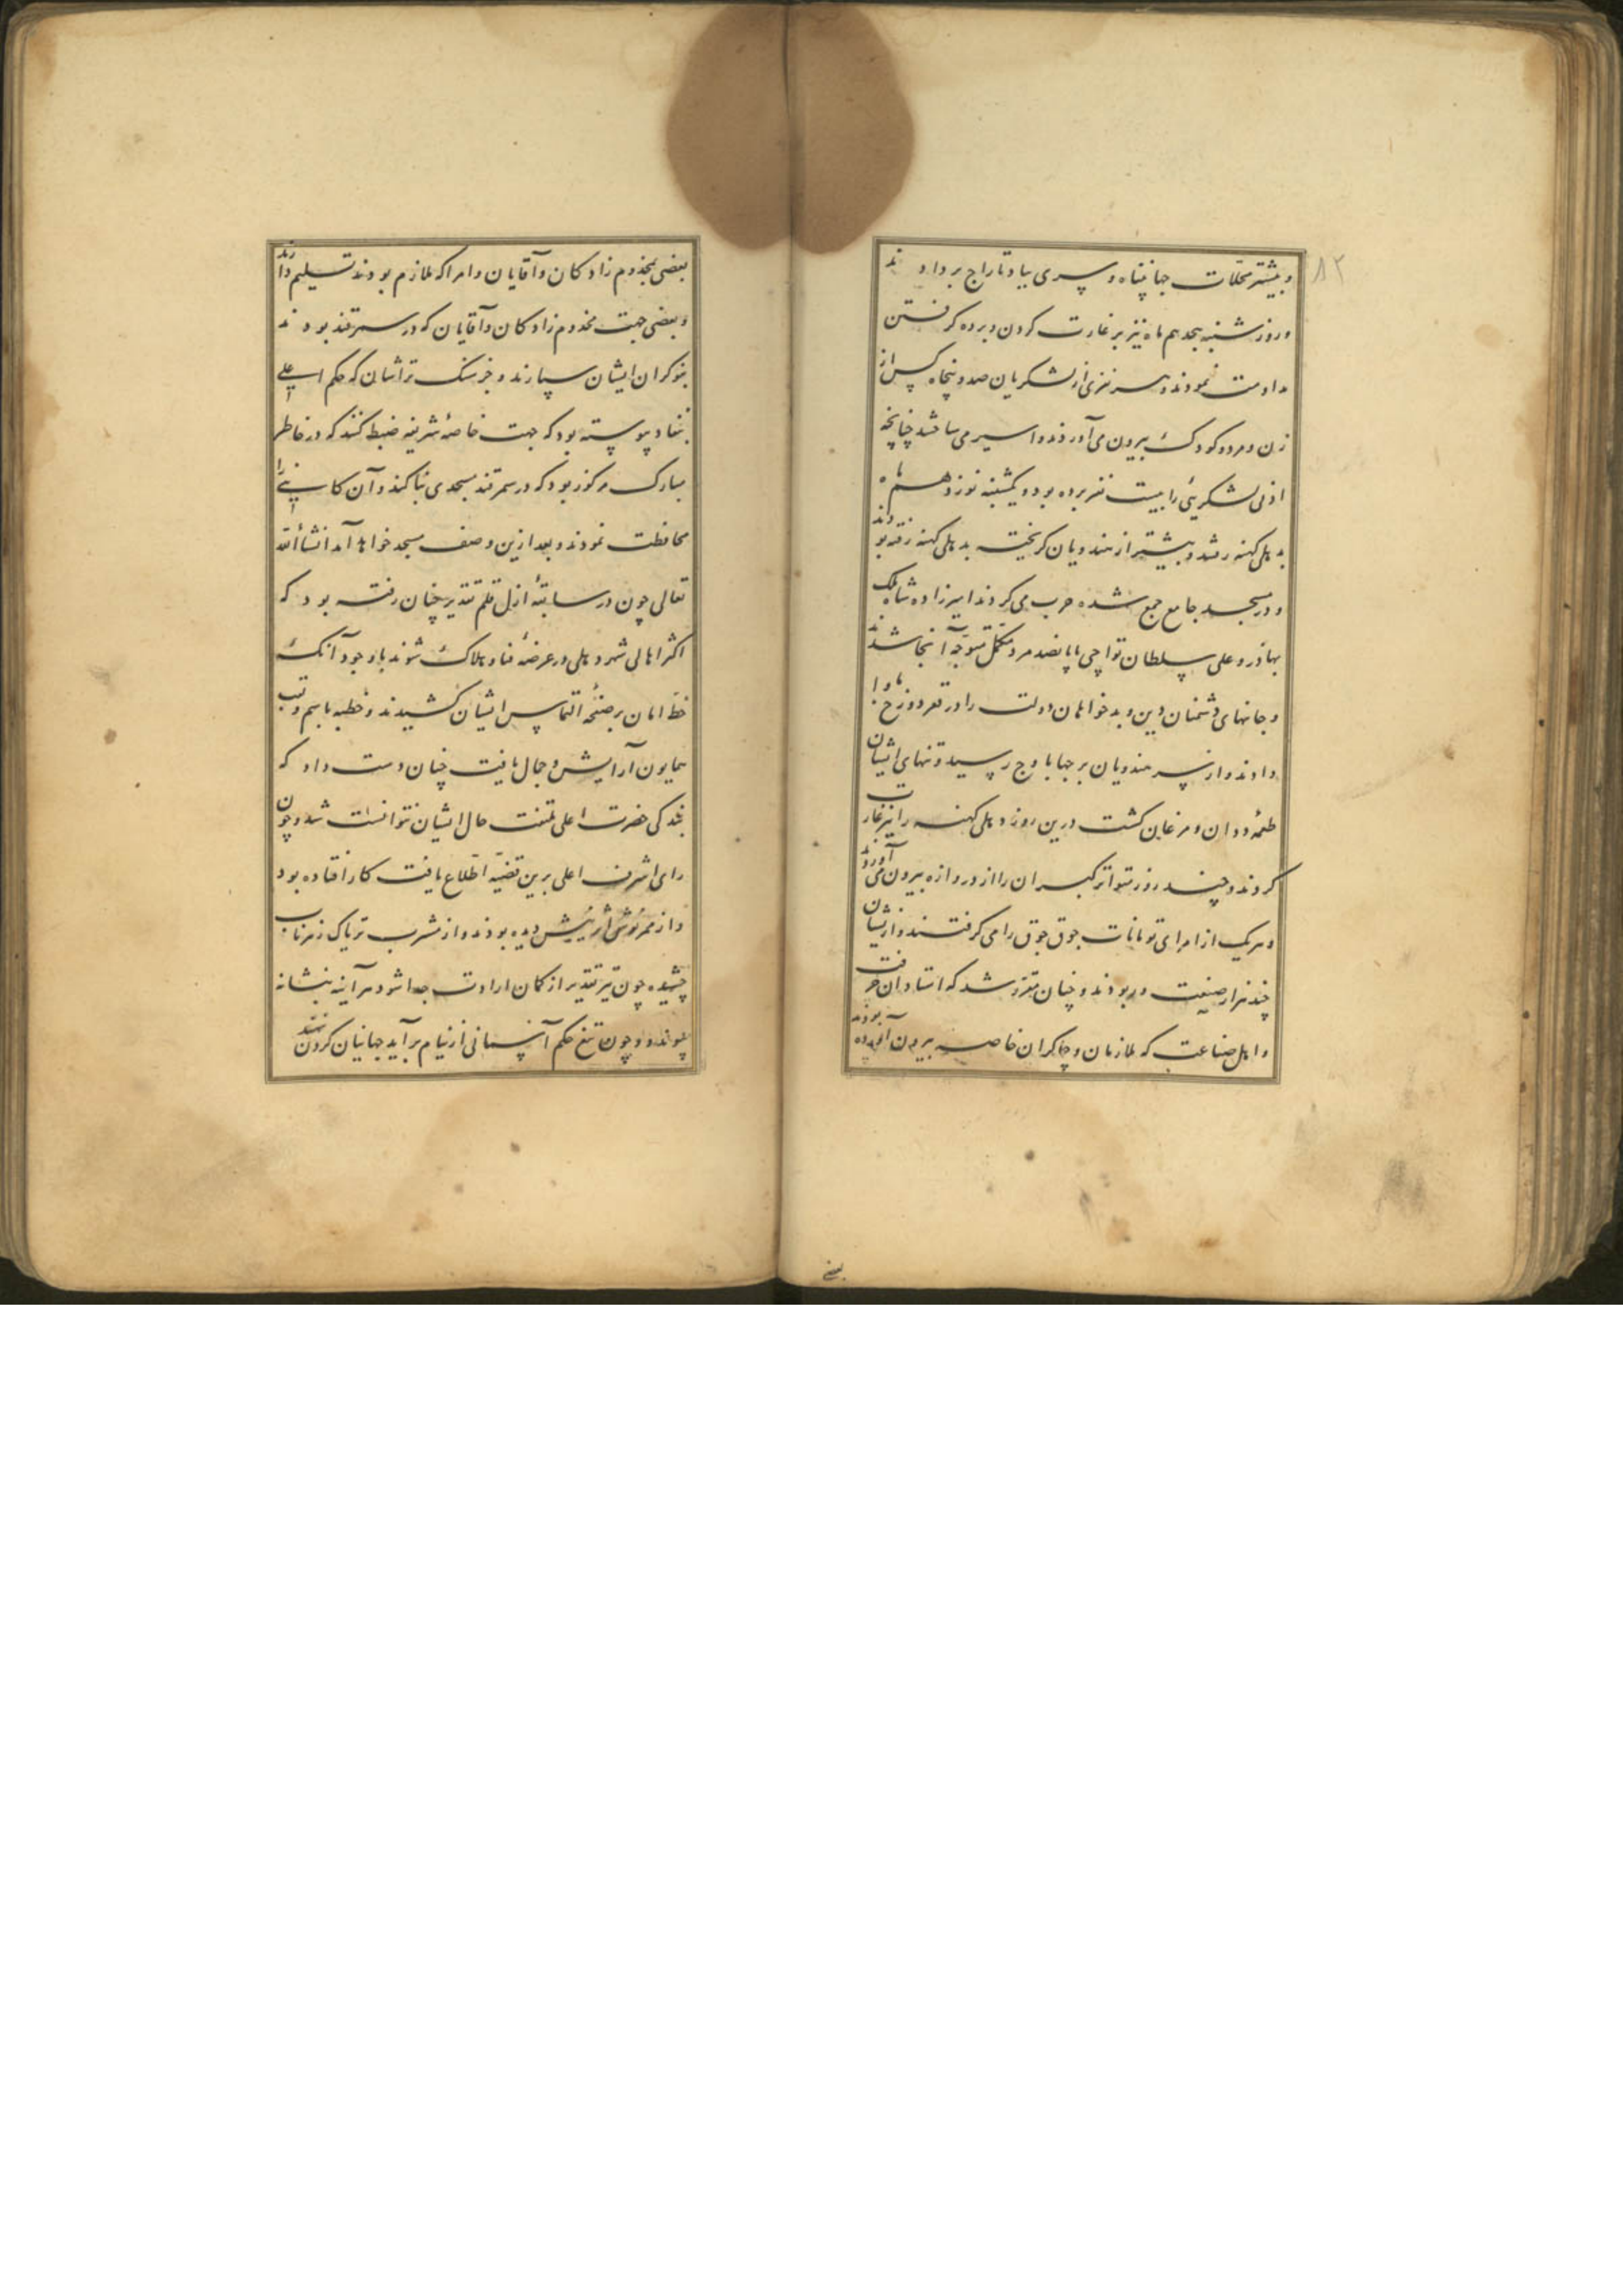 ۸۲
و بیشتر محلّات جهانپناه و سیری بباد تاراج بردادند
و روز شنبه هجدهم ماه نیز بر غارت کردن و برده گرفتن
مداومت نمودند و هر نفری از لشکریان صد و پنجاه کس از
زن و مرد و کودک بیرون می آوردند و اسیر می ساختند چنانچه
ادنی لشکریئی را بیست نفر برده بود و یکشنبه نوزدهم ماه
بدهلی کهنه رفتند و بیشتر از هندویان گریخته بدهلی کهنه رفته بودند
و در مسجد جامع جمع شده حرب می کردند امیرزاده شاه ملک
بهادر و علی سلطان تواچی با پانصد مرد مکمّل متوجّه آنجا شدند
و جانهای دشمنان دین و بدخواهان دولت را در قعر دوزخ ماوا
دادند و از سر هندویان برجها باوج رسید و تنهای ایشان
طعمه ددان و مرغان گشت درین روز دهلی کهنه را نیز غارت
کردند و چند روز متواتر گبران را از دروازه بیرون می آوردند
و هریک از امرای تومانات جوق جوق را می گرفتند و از ایشان
چند هزار صنعت ور بودند و چنان مقرّر شد که استادان حرفت
و اهل صناعت که ملازمان و چاکران خاصه بیرون آورده بودند
بعضی
بعضی بمخدوم زادکان و آقایان و امرا که ملازم بودند تسلیم دارند
و بعضی جهت مخدوم زادکان و آقایان که در سمرقند بودند
بنوکران ایشان سپارند و جز سنگ تراشان که حکم اعلی
بنفاد پیوسته بود که جهت خاصهٔ شریفه ضبط کنند که در خاطر
مبارک مرکوز بود که در سمرقند مسجدی بنا کند و آن کسانی را
محافظت نمودند و بعد ازین وصف مسجد خواهد آمد انشأالله
تعالی چون در سابقهٔ ازل قلم تقدیر چنان رفته بود که
اکثر اهالی شهر دهلی در عرضهٔ فنا و هلاک شوند باوجود آنک
خطّ امان بر صفحهٔ التماس ایشان کشیدند و خطبه باسم و لقب
همایون آرایش و جمال یافت چنان دست داد که
بندگی حضرت اعلی ملتفت حال ایشان نتوانست شد و چون
رای اشرف اعلی برین قضیّه اطّلاع یافت کار افتاده بود
و از ممر نوش اثر نیش دیده بودند و از مشرب تریاک زهر ناب
چشیده چون تیر تقدیر از کمان ارادت جدا شود هرآینه بنشانه
پیوندد و چون تیغ حکم آسمانی از نیام برآید جهانیان گردن نهند